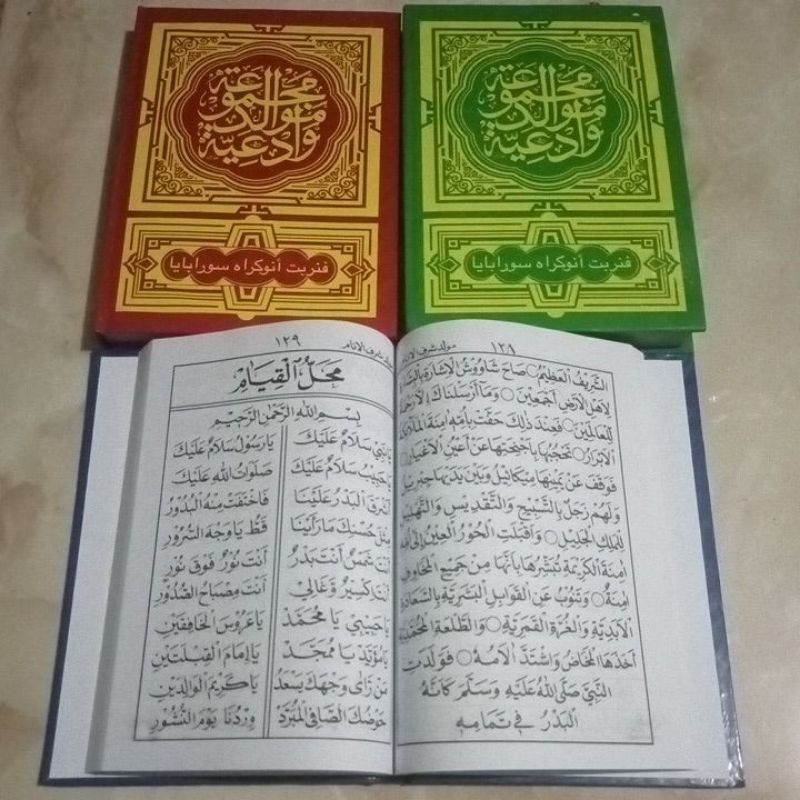 مجموعة
موالد
وادعية
فنربت انوكراه سورابايا
مجموعة
موالد
وادعية
فنربت انوكراه سورابايا
١٢٨ مولد شرف الانام
الشَّرِيْفُ الْعَظِيْمُ ○ صَاحَ شَاوُوْشُ الْاِشَارَةِ
لِاَهْلِ الْاَرْضِ اَجْمَعِيْنَ ○ وَمَا اَرْسَلْنَاكَ اِلَّا رَحْمَةً
لِلْعَالَمِيْنَ ○ فَعِنْدَ ذٰلِكَ حَفَّتْ بِاُمِّهِ اٰمِنَةَ الْمَلَائِكَةُ
الْاَبْرَارُ ○ تَحْجُبُهَا بِاَجْنِحَتِهَا عَنْ اَعْيُنِ الْاَغْيَارِ
فَوَقَفَ عَنْ يَمِيْنِهَا مِيْكَائِيْلُ وَبَيْنَ يَدَيْهَا جِبْرِيْلُ
وَلَهُمْ زَجَلٌ بِالتَّسْبِيْحِ وَالتَّقْدِيْسِ وَالتَّهْلِيْلِ
لِلْمَلِكِ الْجَلِيْلِ ○ وَاَقْبَلَتِ الْحُوْرُ الْعِيْنُ اِلٰى
اٰمِنَةَ الْكَرِيْمَةِ تُبَشِّرُهَا بِاَنَّهَا مِنْ جَمِيْعِ الْمَخَاوِفِ
اٰمِنَةٌ ○ وَتَنُوْبُ عَنِ الْقَوَابِلِ الْبَشَرِيَّةِ بِالسَّعَادَةِ
الْاَبَدِيَّةِ وَالْغُرَّةِ الْقَمَرِيَّةِ ○ وَالطَّلْعَةِ الْمُحَمَّدِيَّةِ
اَخَذَهَا الْمَخَاضُ وَاشْتَدَّ الْاَمُهُ ○ فَوَلَدَتِ
النَّبِيَّ صَلَّى اللهُ عَلَيْهِ وَسَلَّمَ كَاَنَّهُ
الْبَدْرُ فِيْ تَمَامِهِ
١٢٩ مولد شرف الانام
مَحَلُّ الْقِيَامِ
بِسْمِ اللهِ الرَّحْمٰنِ الرَّحِيْمِ
يَا نَبِيْ سَلَامٌ عَلَيْكَ يَا رَسُوْلْ سَلَامٌ عَلَيْكَ
يَا حَبِيْبْ سَلَامٌ عَلَيْكَ صَلَوَاتُ اللهِ عَلَيْكَ
اَشْرَقَ الْبَدْرُ عَلَيْنَا فَاخْتَفَتْ مِنْهُ الْبُدُوْرُ
مِثْلَ حُسْنِكَ مَا رَاَيْنَا قَطُّ يَا وَجْهَ السُّرُوْرِ
اَنْتَ شَمْسٌ اَنْتَ بَدْرٌ اَنْتَ نُوْرٌ فَوْقَ نُوْرِ
اَنْتَ اِكْسِيْرٌ وَغَالِيْ اَنْتَ مِصْبَاحُ الصُّدُوْرِ
يَا حَبِيْبِيْ يَا مُحَمَّدْ يَا عَرُوْسَ الْخَافِقَيْنِ
يَا مُؤَيَّدْ يَا مُمَجَّدْ يَا اِمَامَ الْقِبْلَتَيْنِ
مَنْ رَاٰى وَجْهَكَ يَسْعَدْ يَا كَرِيْمَ الْوَالِدَيْنِ
حَوْضُكَ الصَّافِى الْمُبَرَّدْ وِرْدُنَا يَوْمَ النُّشُوْرِ